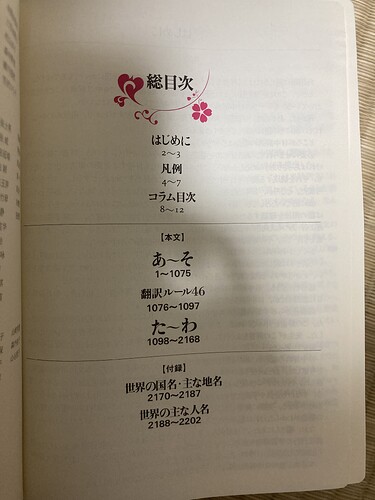 総目次
はじめに
2〜3
凡例
4〜7
コラム目次
8〜12
【本文】
あ〜そ
1〜1075
翻訳ルール46
1076〜1097
た〜わ
1098〜2168
【付録】
世界の国名・主な地名
2170〜2187
世界の主な人名
2188〜2202